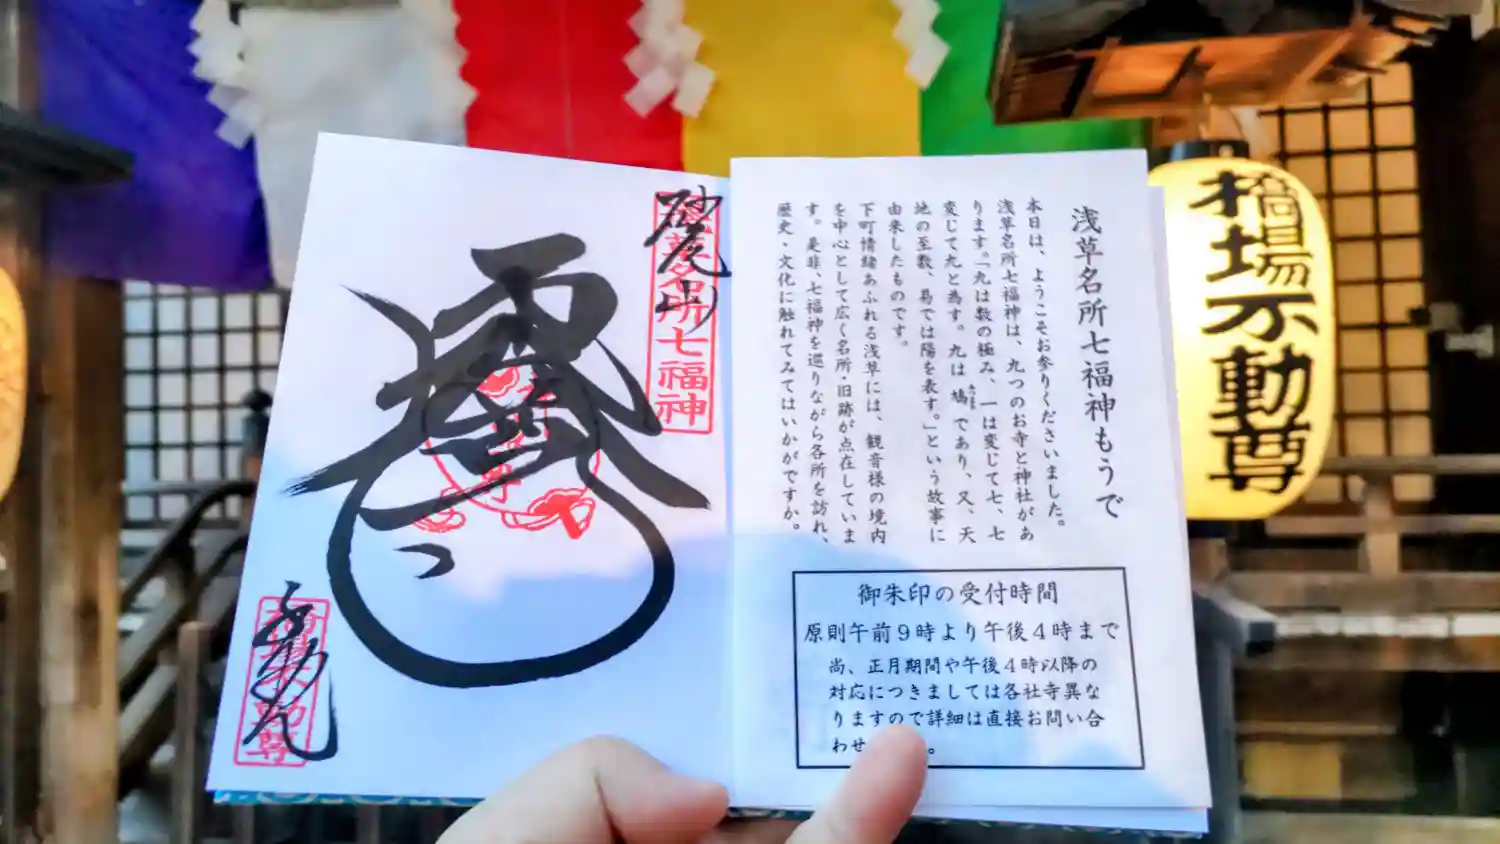 浅草名所七福神もうで
本日は、ようこそお参りくださいました。
浅草名所七福神は、九つのお寺と神社があ
ります。「九は数の極み、一は変じて七、七
変じて九と為す。九は鳩であり、又、天
地の至数、易では陽を表す。」という故事に
由来したものです。
下町情緒あふれる浅草には、観音様の境内
を中心として広く名所・旧跡が点在していま
す。是非、七福神を巡りながら各所を訪れ、
歴史・文化に触れてみてはいかがですか。
御朱印の受付時間
原則午前9時より午後4時まで
尚、正月期間や午後4時以降の
対応につきましては各社寺異な
りますので詳細は直接お問い合
わせ
浅草名所七福神
橋場不動尊
橋場不動尊